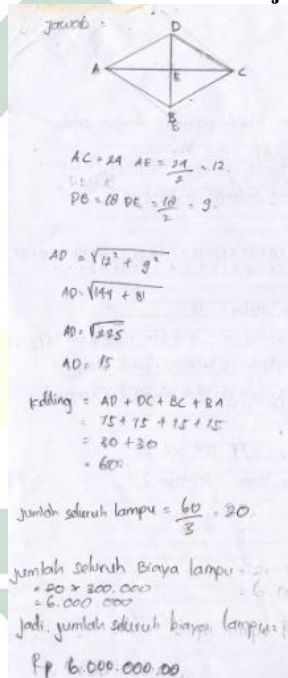 Jawab :
D
A
E
C
B
AC = 24 AE = 24/2 = 12.
DB = 18 DE = 18/2 = 9.
AD = √12² + 9²
AD = √144 + 81
AD = √225
AD = 15
Keliling = AD + DC + BC + BA
= 15 + 15 + 15 + 15
= 30 + 30
= 60
Jumlah seluruh lampu = 60/3 = 20
Jumlah seluruh Biaya lampu =
= 20 x 300.000
= 6.000.000
Jadi, jumlah seluruh biaya lampu =
Rp 6.000.000,00